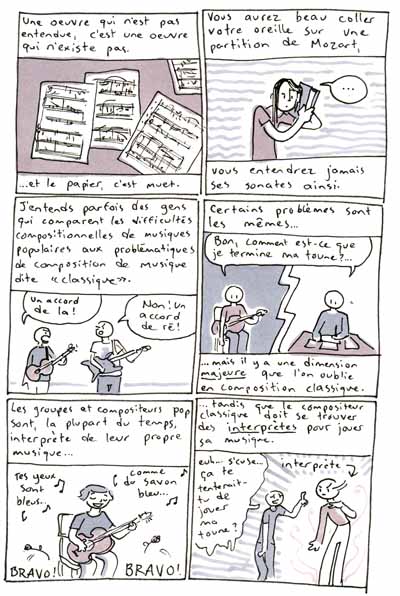 Une oeuvre qui n'est pas
entendue, c'est une oeuvre
qui n'existe pas.
...et le papier, c'est muet.
Vous aurez beau coller
votre oreille sur une
partition de Mozart,
...
vous entendrez jamais
ses sonates ainsi.
J'entends parfois des gens
qui comparent les difficultés
compositionnelles de musiques
populaires aux problématiques
de composition de musique
dite «classique».
Un accord
de la!
Non! Un
accord
de ré!
Certains problèmes sont
les mêmes...
Bon, comment est-ce que
je termine ma toune?...
...mais il y a une dimension
majeure que l'on oublie
en composition classique.
Les groupes et compositeurs pop
sont, la plupart du temps,
interprète de leur propre
musique...
Tes yeux
sont
bleus...
comme
du savon
bleu...
BRAVO!
BRAVO!
...tandis que le compositeur
classique doit se trouver
des interprètes pour jouer
sa musique.
euh... s'cuse...
ça te
tenterait-
tu de
jouer
ma
toune?
interprète